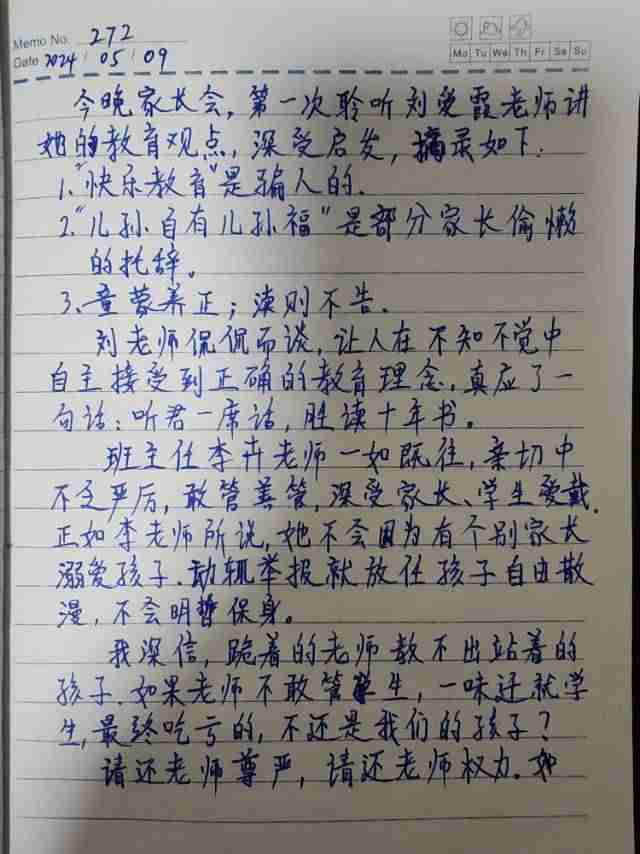 Memo No. 272
Mo Tu We Th Fr Sa Su
Date 2024 / 05 / 09
今晚家长会，第一次聆听刘爱霞老师讲
她的教育观点，深受启发，摘录如下：
1.“快乐教育”是骗人的.
2.“儿孙自有儿孙福”是部分家长偷懒
的托辞。
3.童蒙养正；渎则不告.
刘老师侃侃而谈，让人在不知不觉中
自主接受到正确的教育理念，真应了一
句话：听君一席话，胜读十年书。
班主任李卉老师一如既往，亲切中
不乏严厉，敢管善管，深受家长、学生爱戴.
正如李老师所说，她不会因为有个别家长
溺爱孩子.动辄举报就放任孩子自由散
漫，不会明哲保身。
我深信，跪着的老师教不出站着的
孩子.如果老师不敢管学生，一味迁就学
生，最终吃亏的，不还是我们的孩子？
请还老师尊严，请还老师权力.如